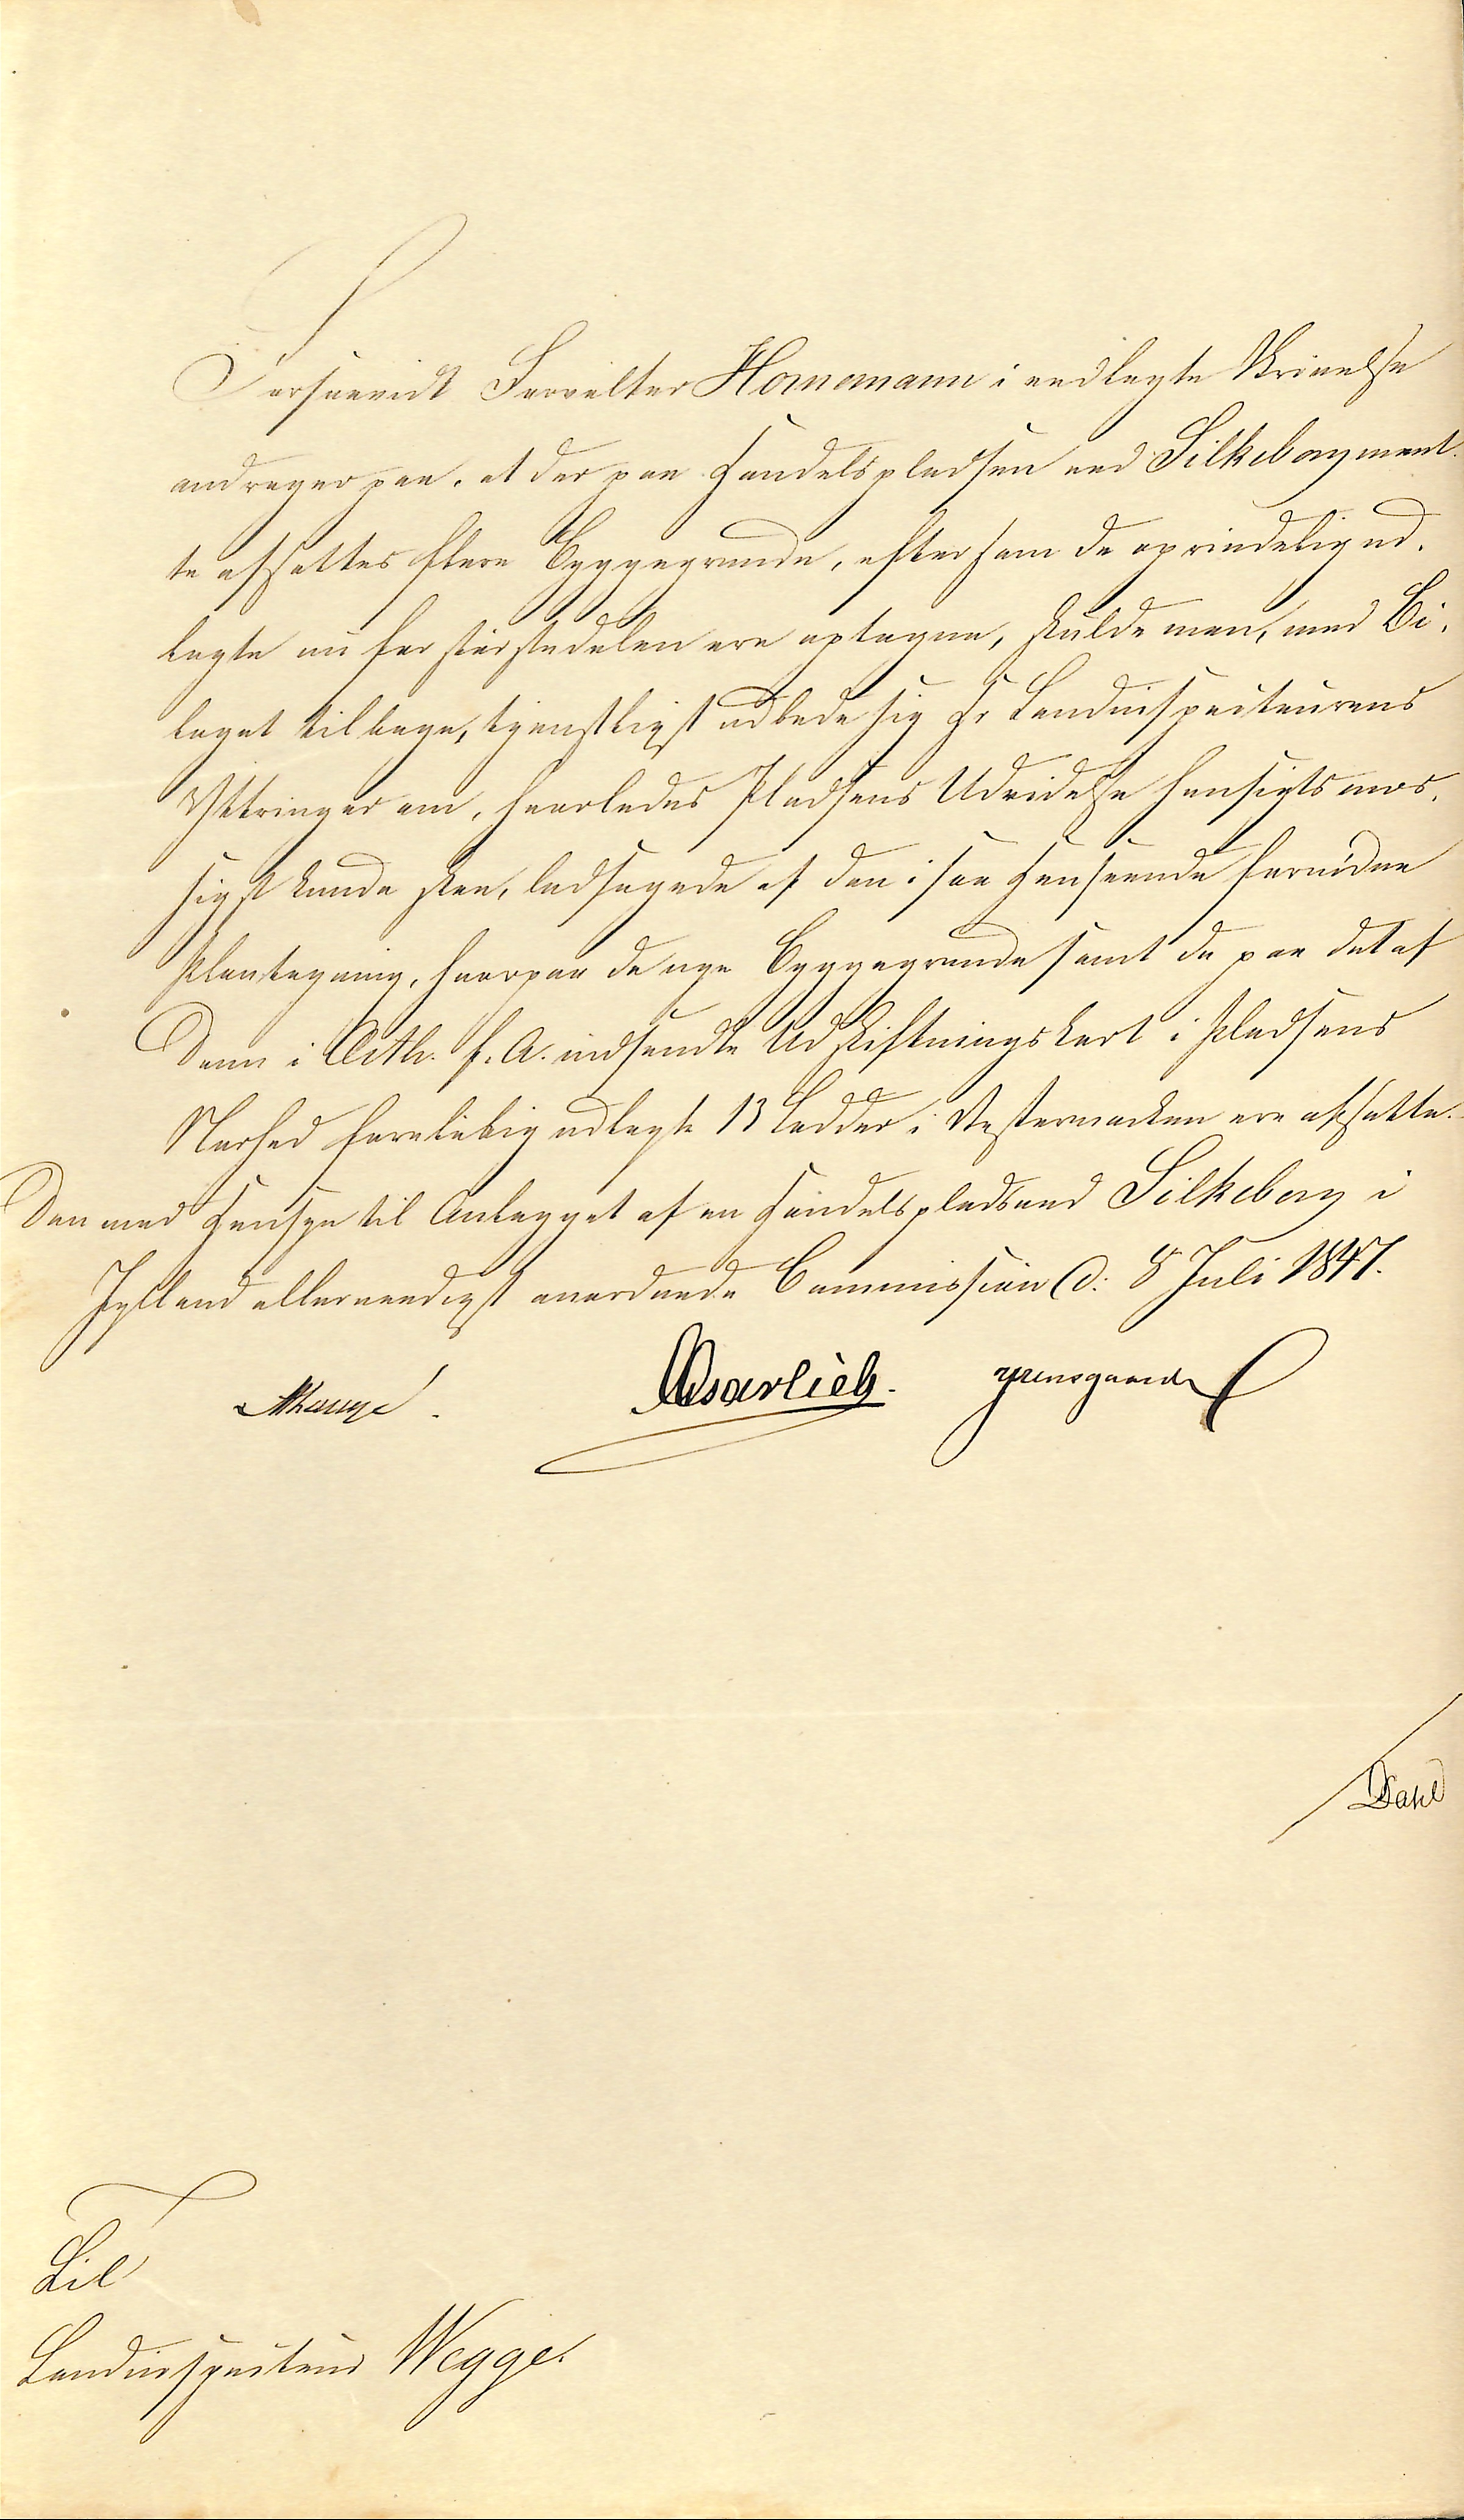 Forsaavidt Forvalter Hornemann i vedlagte Skrivelse
andrager paa, at der paa Handelspladsen ved Silkeborg maat-
te afsættes flere Byggegrunde, eftersom de oprindelig ud-
lagte nu for størstedelen ere optagne, skulde man, med Bi-
laget tilbage, tjenstligst udbede sig Hr Landinspecteurens
Yttringer om, hvorledes Pladsens Udvidelse hensigtsmæs-
sigst kunde skee, ledsagede af den i saa Henseende fornødne
Plantegning, hvorpaa de nye Byggegrunde samt de paa det af
Dem i Octb. f. A. indsendte Udskiftningskort i Pladsens
Nærhed foreløbig udlagte 13 Lodder i Vestermarken ere afsatte.
Den med Hensyn til Anlægget af en Handelsplads ved Silkeborg i
Jylland allernaadigst anordnede Commission d: 8 Juli 1847.
Garlieb. Grønsgaard
Dahl
Til
Landinspecteur Wegge.